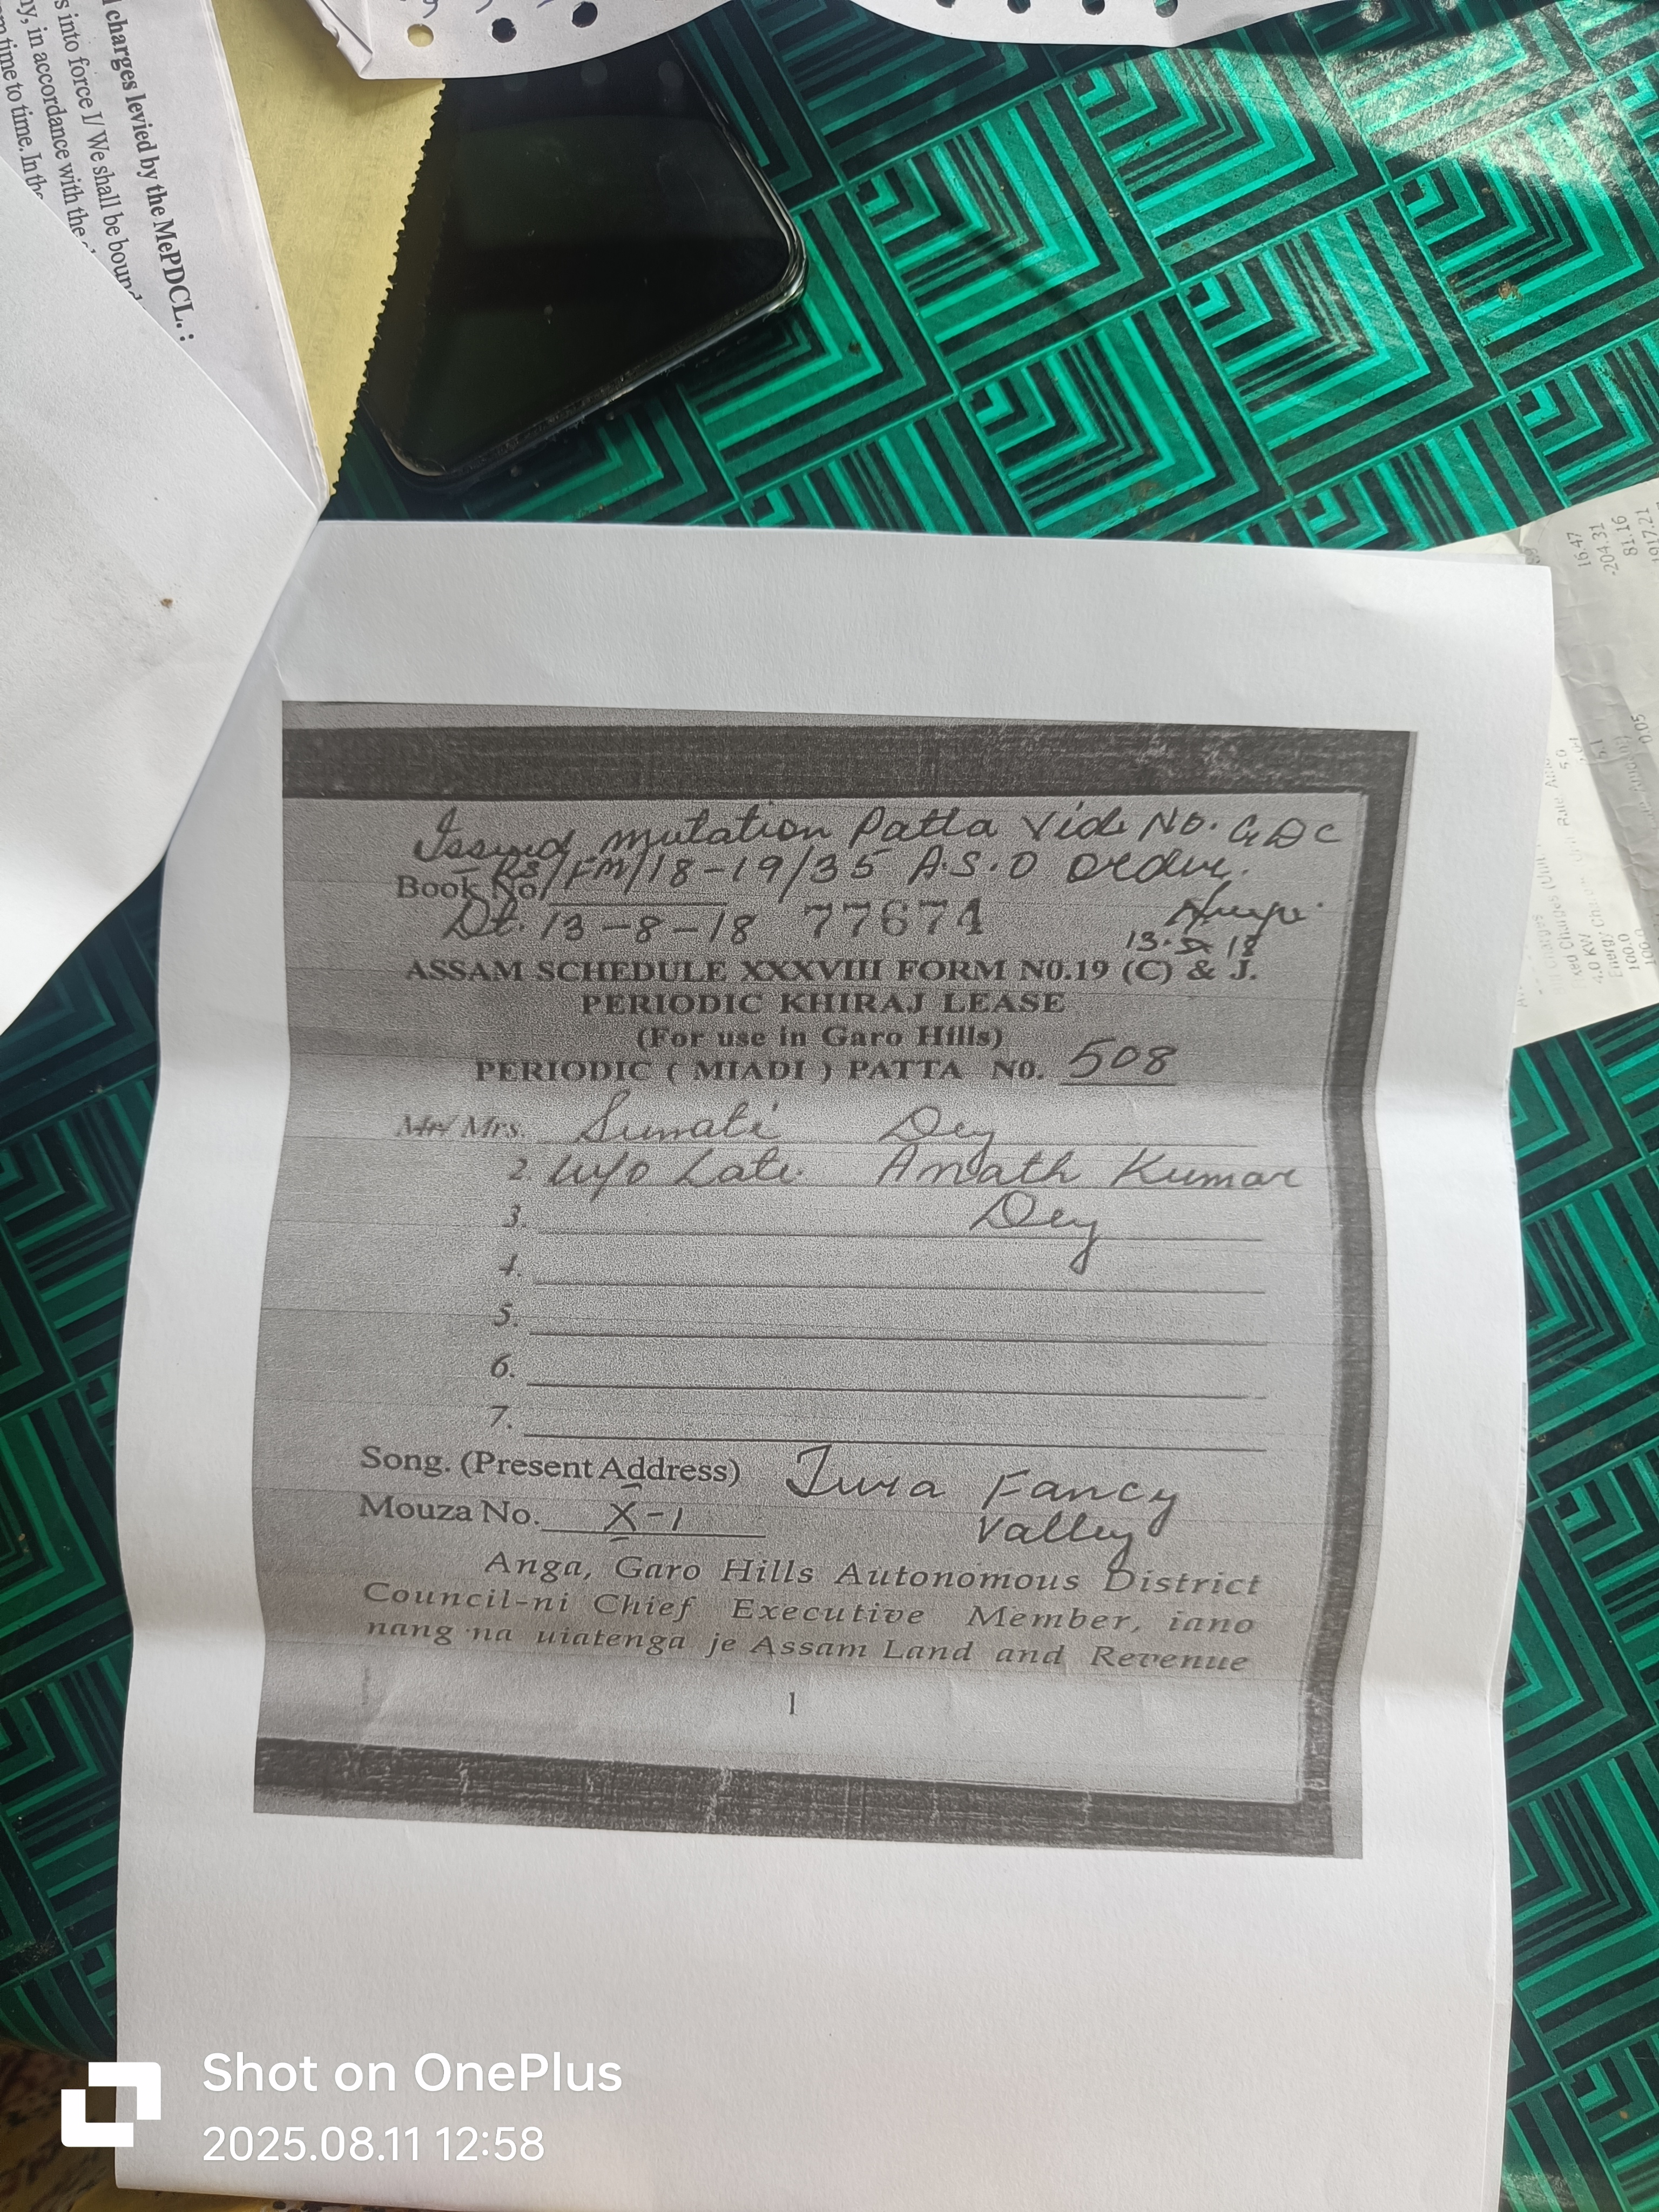 charges levied by the MePDCL. :
s into force I/ We shall be bound
y, in accordance with the
time to time. In the
16.47
-204.31
81.16
1917.21
0.05
5.0
4.0 KW
100.0
Issued mutation Patta Vide No. GDC
RS/FM/18-19/35 A.S.O Order.
Book No.
Dt. 13-8-18 77674
13.8.18
ASSAM SCHEDULE XXXVIII FORM NO.19 (C) & J.
PERIODIC KHIRAJ LEASE
(For use in Garo Hills)
PERIODIC ( MIADI ) PATTA NO. 508
Mr/ Mrs. Sumati Dey
2. W/o Late. Anath Kumar
3. Dey
4.
5.
6.
7.
Song. (Present Address) Tura Fancy
Mouza No. X-1 Valley
Anga, Garo Hills Autonomous District
Council-ni Chief Executive Member, iano
nang·na uiatenga je Assam Land and Revenue
1
Shot on OnePlus
2025.08.11 12:58